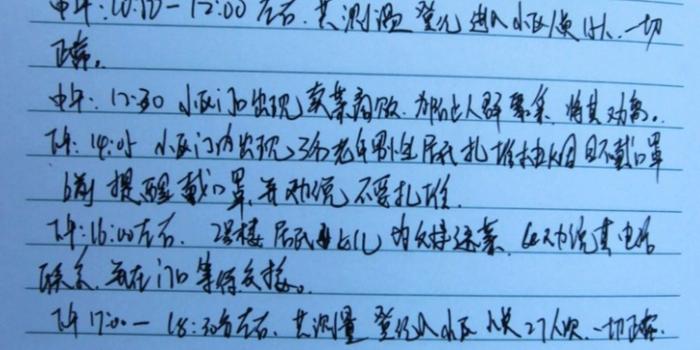 中午:10:10-12:00左右.共测温登记进入小区人员18人.一切
正常。
中午:12:30 小区门口出现卖菜商贩.为防止人群聚集.将其劝离。
下午:14:05 小区门内出现3名老年男性居民扎堆抽烟且不戴口罩
提醒戴口罩.并劝说不要扎堆.
下午:16:00左右. 2号楼居民 劝说其电话
联系.勿在门口等待交接。
下午17:00-18:30左右.共测量登记入小区人员27人次.一切正常.